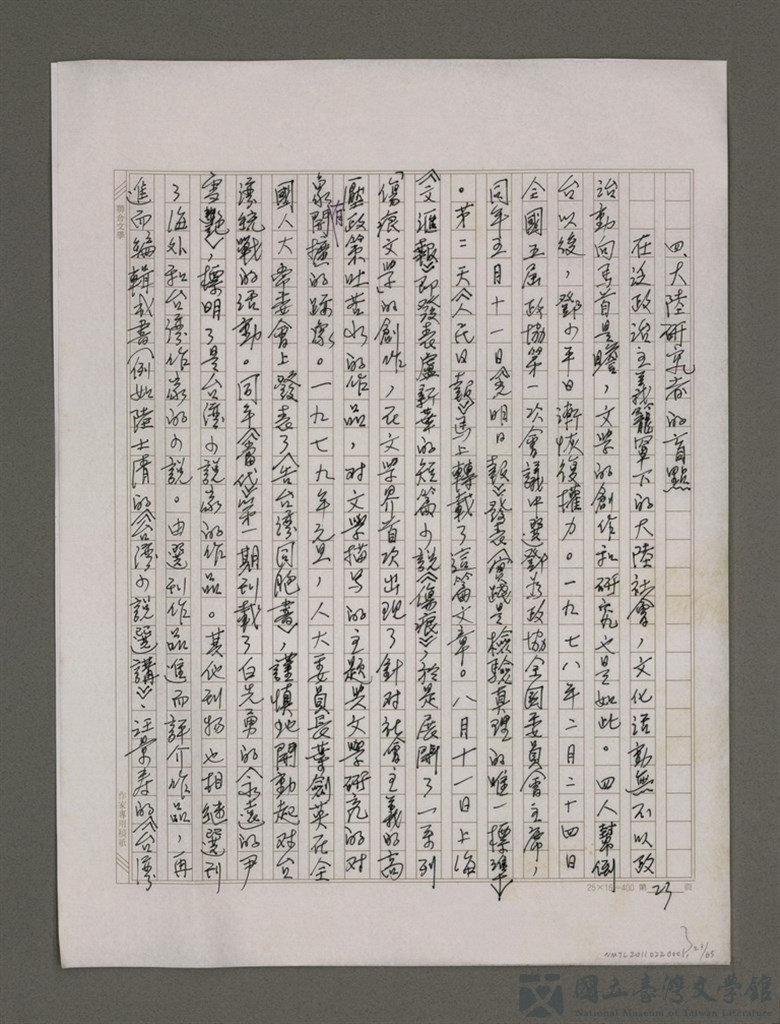 四、大陸研究者的盲點
在泛政治主義籠罩下的大陸社會,文化活動無不以政
治動向馬首是瞻,文學的創作和研究也是如此。四人幫倒
台以後,鄧小平日漸恢復權力。一九七八年二月二十四日
全國五屆政協第一次會議中選鄧為政協全國委員會主席,
同年五月十一日《光明日報》發表〈實踐是檢驗真理的唯一標準〉
。第二天《人民日報》馬上轉載了這篇文章。八月十一日上海
《文滙報》即發表盧新華的短篇小說〈傷痕〉,於是展開了一系列
「傷痕文學」的創作,在文學界首次出現了針對社會主義的高
壓政策吐苦水的作品,對文學描写的主題與文學研究的对
象有開擴的跡象。一九七九年元旦,人大委員長葉劍英在全
國人大常委會上發表了〈告台灣同胞書〉,謹慎地開動起对台
灣統戰的活動。同年《當代》第一期刊載了白先勇的〈永遠的尹
雪艷〉,標明了是台灣小說家的作品。其他刊物也相繼選刊
了海外和台灣作家的小說。由選刊作品進而評介作品,再
進而編輯成書(例如陸士清的《台灣小說選講》、汪景寿的《台灣
聯合文學
作家專用稿紙
25×16=400 第 23 頁
NMTL20110220001
21/25
國立臺灣文學館
National Museum of Taiwan Literature